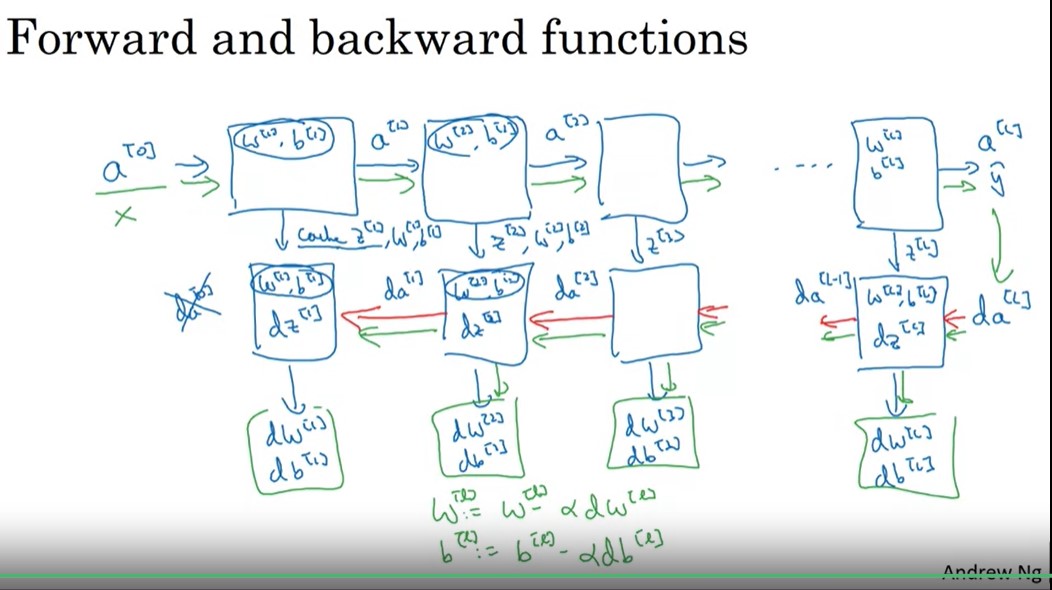 Forward and backward functions
a^[0] x
w^[1], b^[1]
a^[1]
w^[2], b^[1]
a^[2]
. . . .
w^[L]
b^[L]
a^[L]
ŷ
cache z^[1], w^[1], b^[1]
z^[2], w^[2], b^[2]
z^[3]
z^[L]
da^[0]
w^[1], b^[1]
dz^[1]
da^[1]
w^[2], b^[2]
dz^[2]
da^[2]
da^[L-1]
w^[L], b^[L]
dz^[L]
da^[L]
dw^[1]
db^[1]
dw^[2]
db^[2]
dw^[3]
db^[3]
dw^[L]
db^[L]
w^[l] := w^[l] - αdw^[l]
b^[l] := b^[l] - αdb^[l]
Andrew Ng